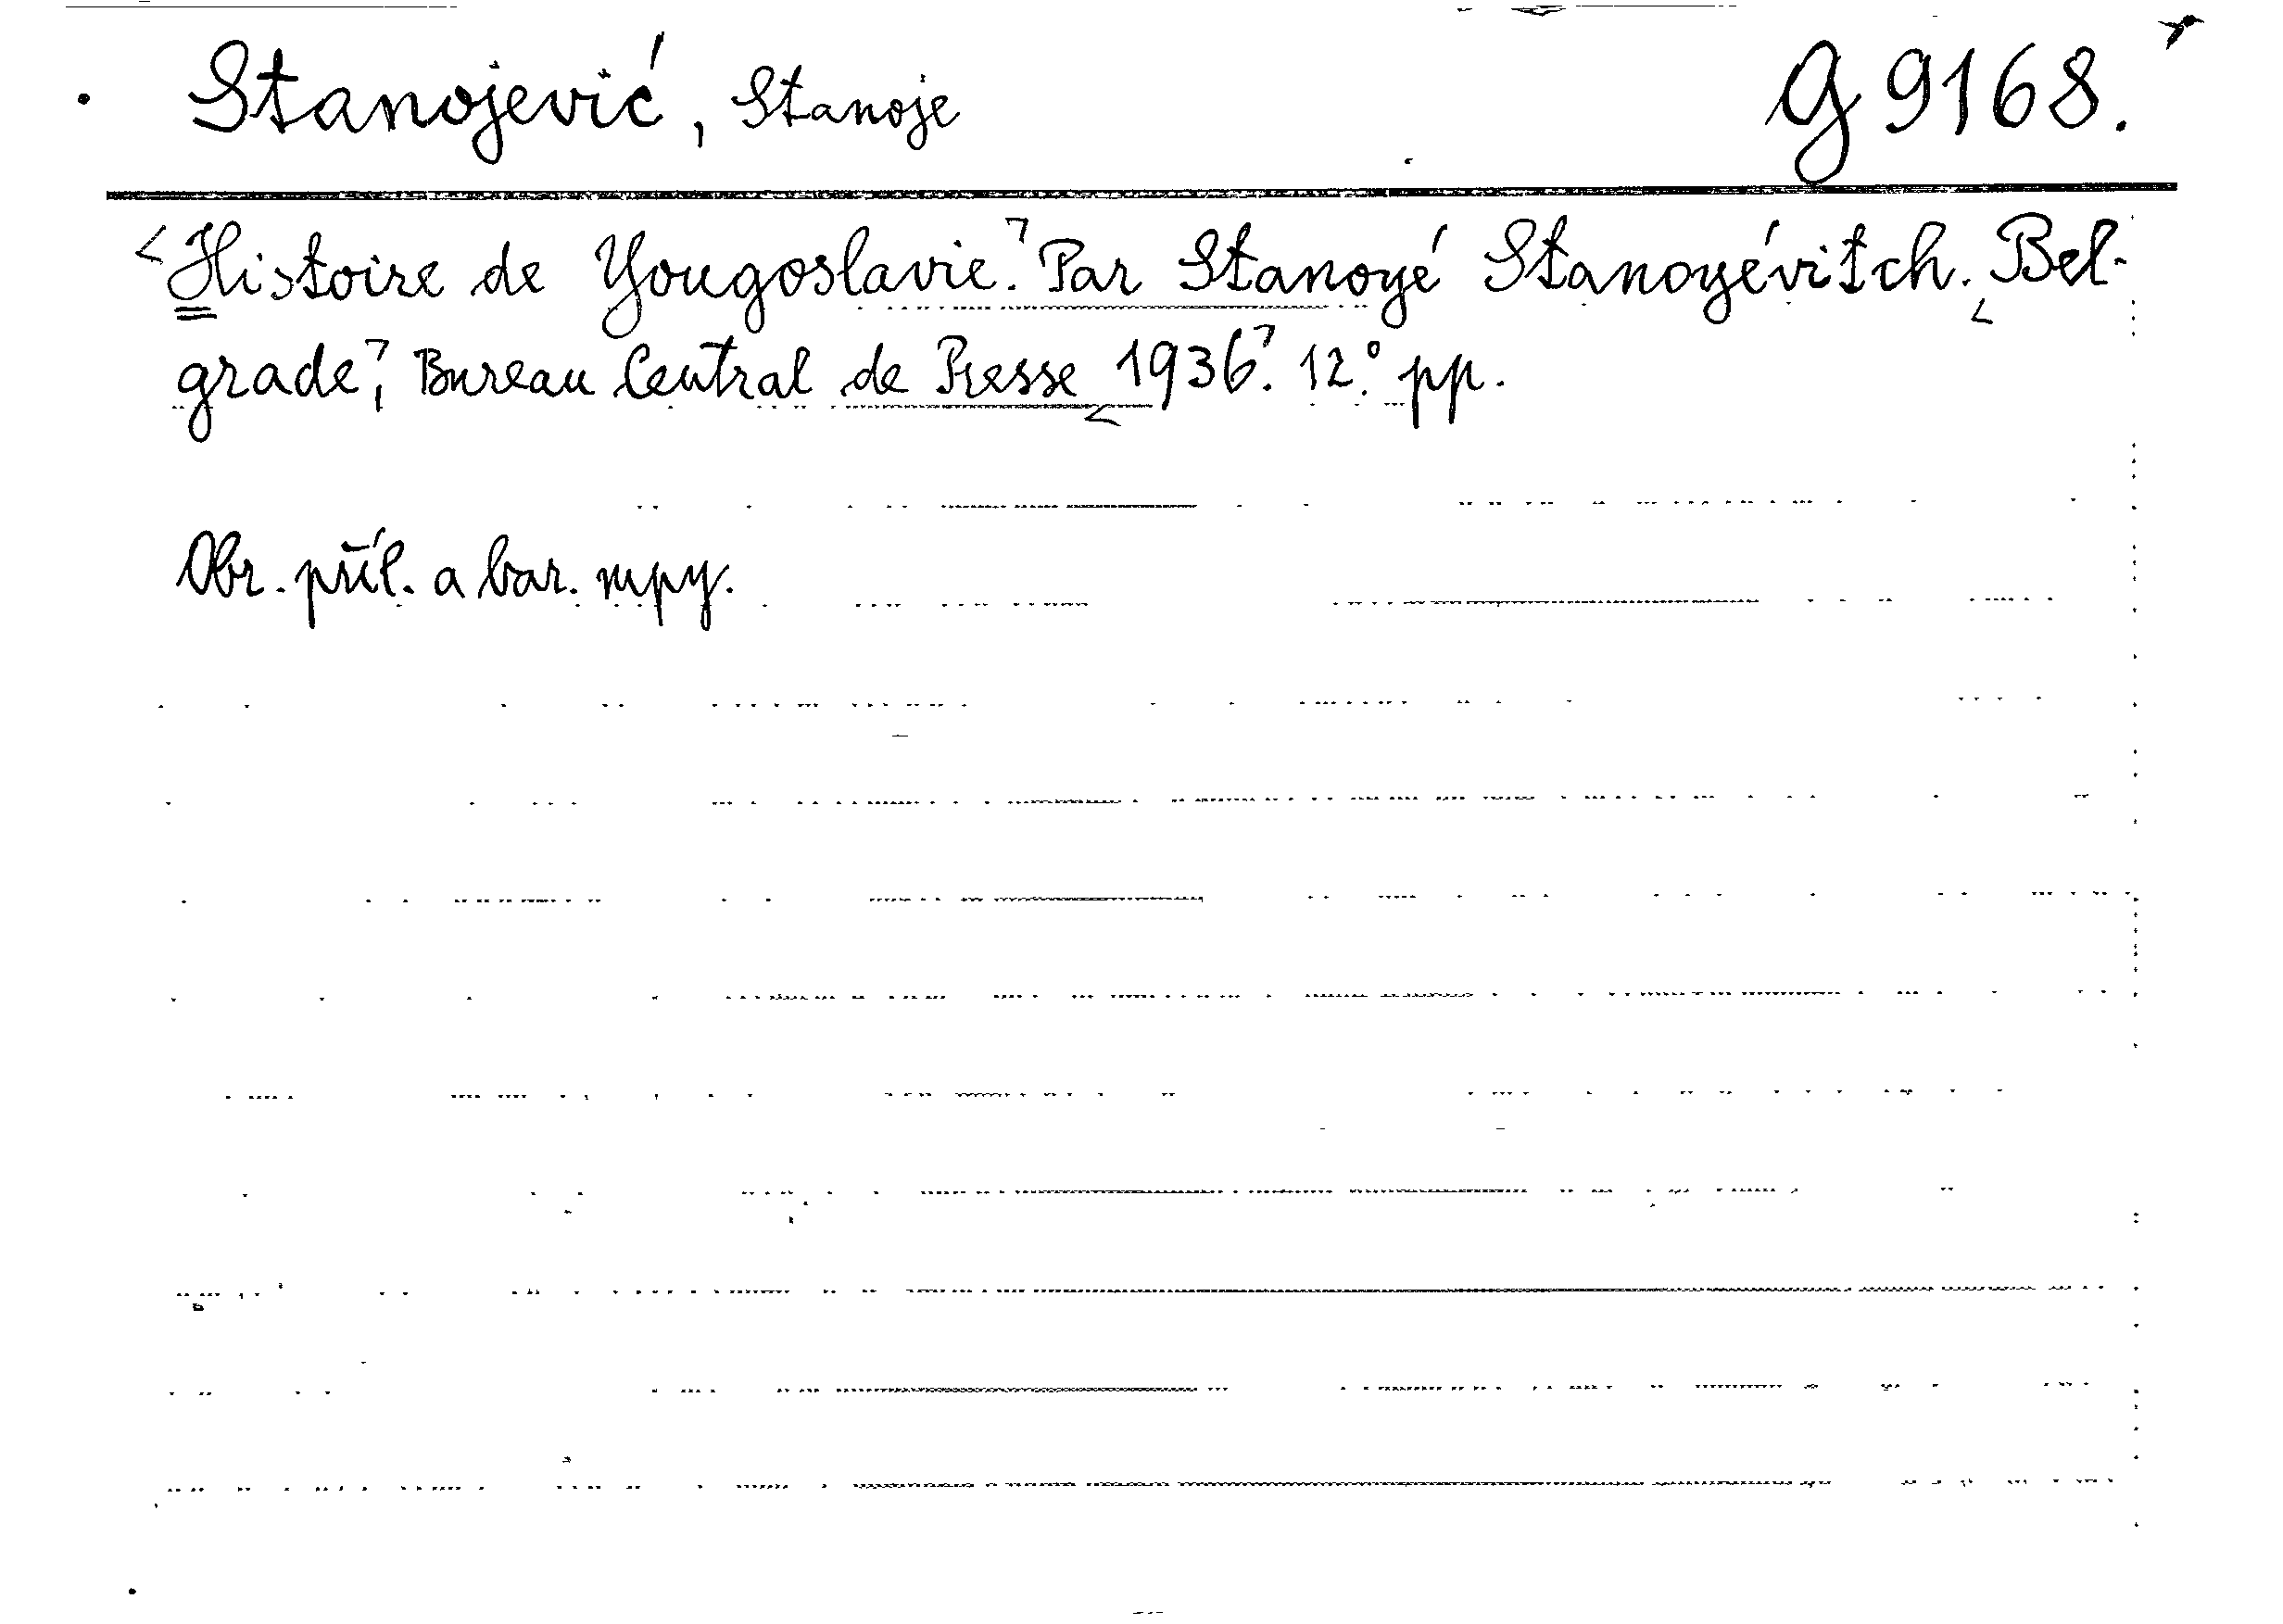 Stanojević, Stanoje G 9168.
Histoire de Yougoslavie. Par Stanoyé Stanoyévitch. Bel-
grade, Bureau Central de Presse 1936. 12.° pp.
Obr. příl. a bar. mpy.